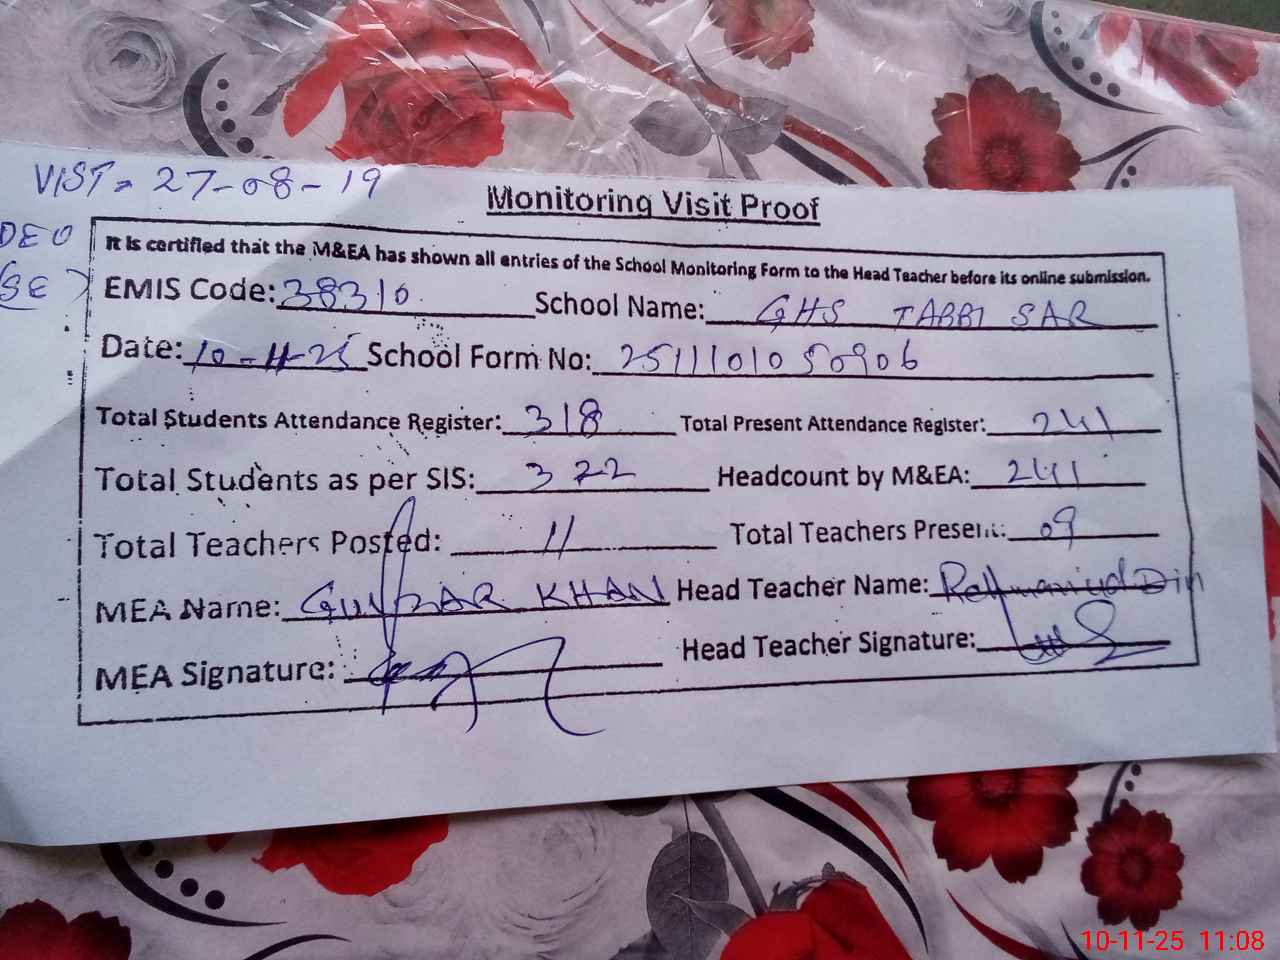 VIST = 27-08-19
Monitoring Visit Proof
DEO
(SE)
It is certified that the M&EA has shown all entries of the School Monitoring Form to the Head Teacher before its online submission.
EMIS Code: 38310 School Name: GHS TABBI SAR
Date: 10-11-25 School Form No: 25111010 50906
Total Students Attendance Register: 318 Total Present Attendance Register: 241
Total Students as per SIS: 322 Headcount by M&EA: 241
Total Teachers Posted: 11 Total Teachers Present: 09
MEA Name: GULZAR KHAN Head Teacher Name: Rehmaniud Din
MEA Signature: Head Teacher Signature:
10-11-25 11:08